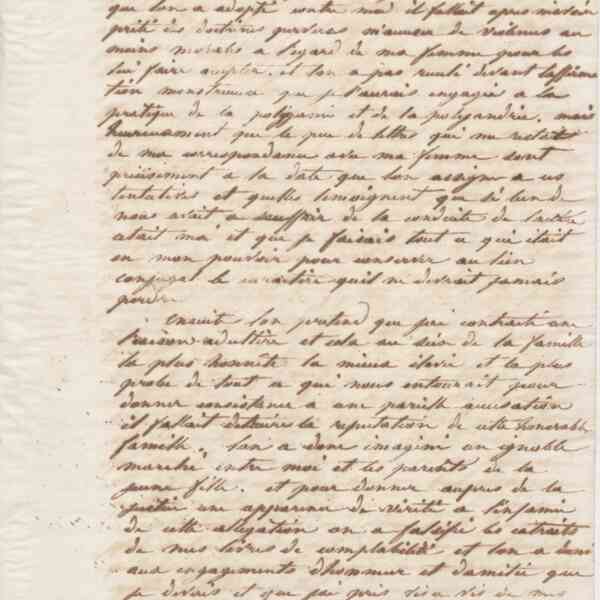 que l'on a adopté contre moi il fallait après m'avoir
prêté des doctrines perverses m'accuser de violences au
moins morales à l'égard de ma femme pour les
lui faire accepter. et l'on a pas reculé devant l'affirma
tion monstrueuse que je l'aurais engagée a la
pratique de la polygamie et de la polyandrie. mais
heureusement que le peu de lettres qui me restent
de ma correspondance avec ma femme sont
précisément a la date que l'on assigne a ces
tentatives et quelles témoignent que si l'un de
nous avait a souffrir de la conduite de l'autre
c'était moi et que je faisais tout ce qui était
en mon pouvoir pour conserver au lien
conjugal le caractère qu'il ne devrait jamais
perdre
ensuite l'on prétend que j'ai contracté une
liaison adultère et cela au sein de la famille
la plus honnête la mieux élevée et la plus
probe de tout ce qui nous entourait pour
donner consistance a une pareille accusation
il fallait détruire la réputation de cette honorable
famille. l'on a donc imaginé un ignoble
marché entre moi et les parents de la
jeune fille. et pour donner auprès de la
justice une apparence de vérité a l'infamie
de cette allégation on a falsifié les extraits
de mes livres de comptabilité et l'on a
aux engagements d'honneur et d'amitié que
je devais et que j'ai pris vis a vis de mes